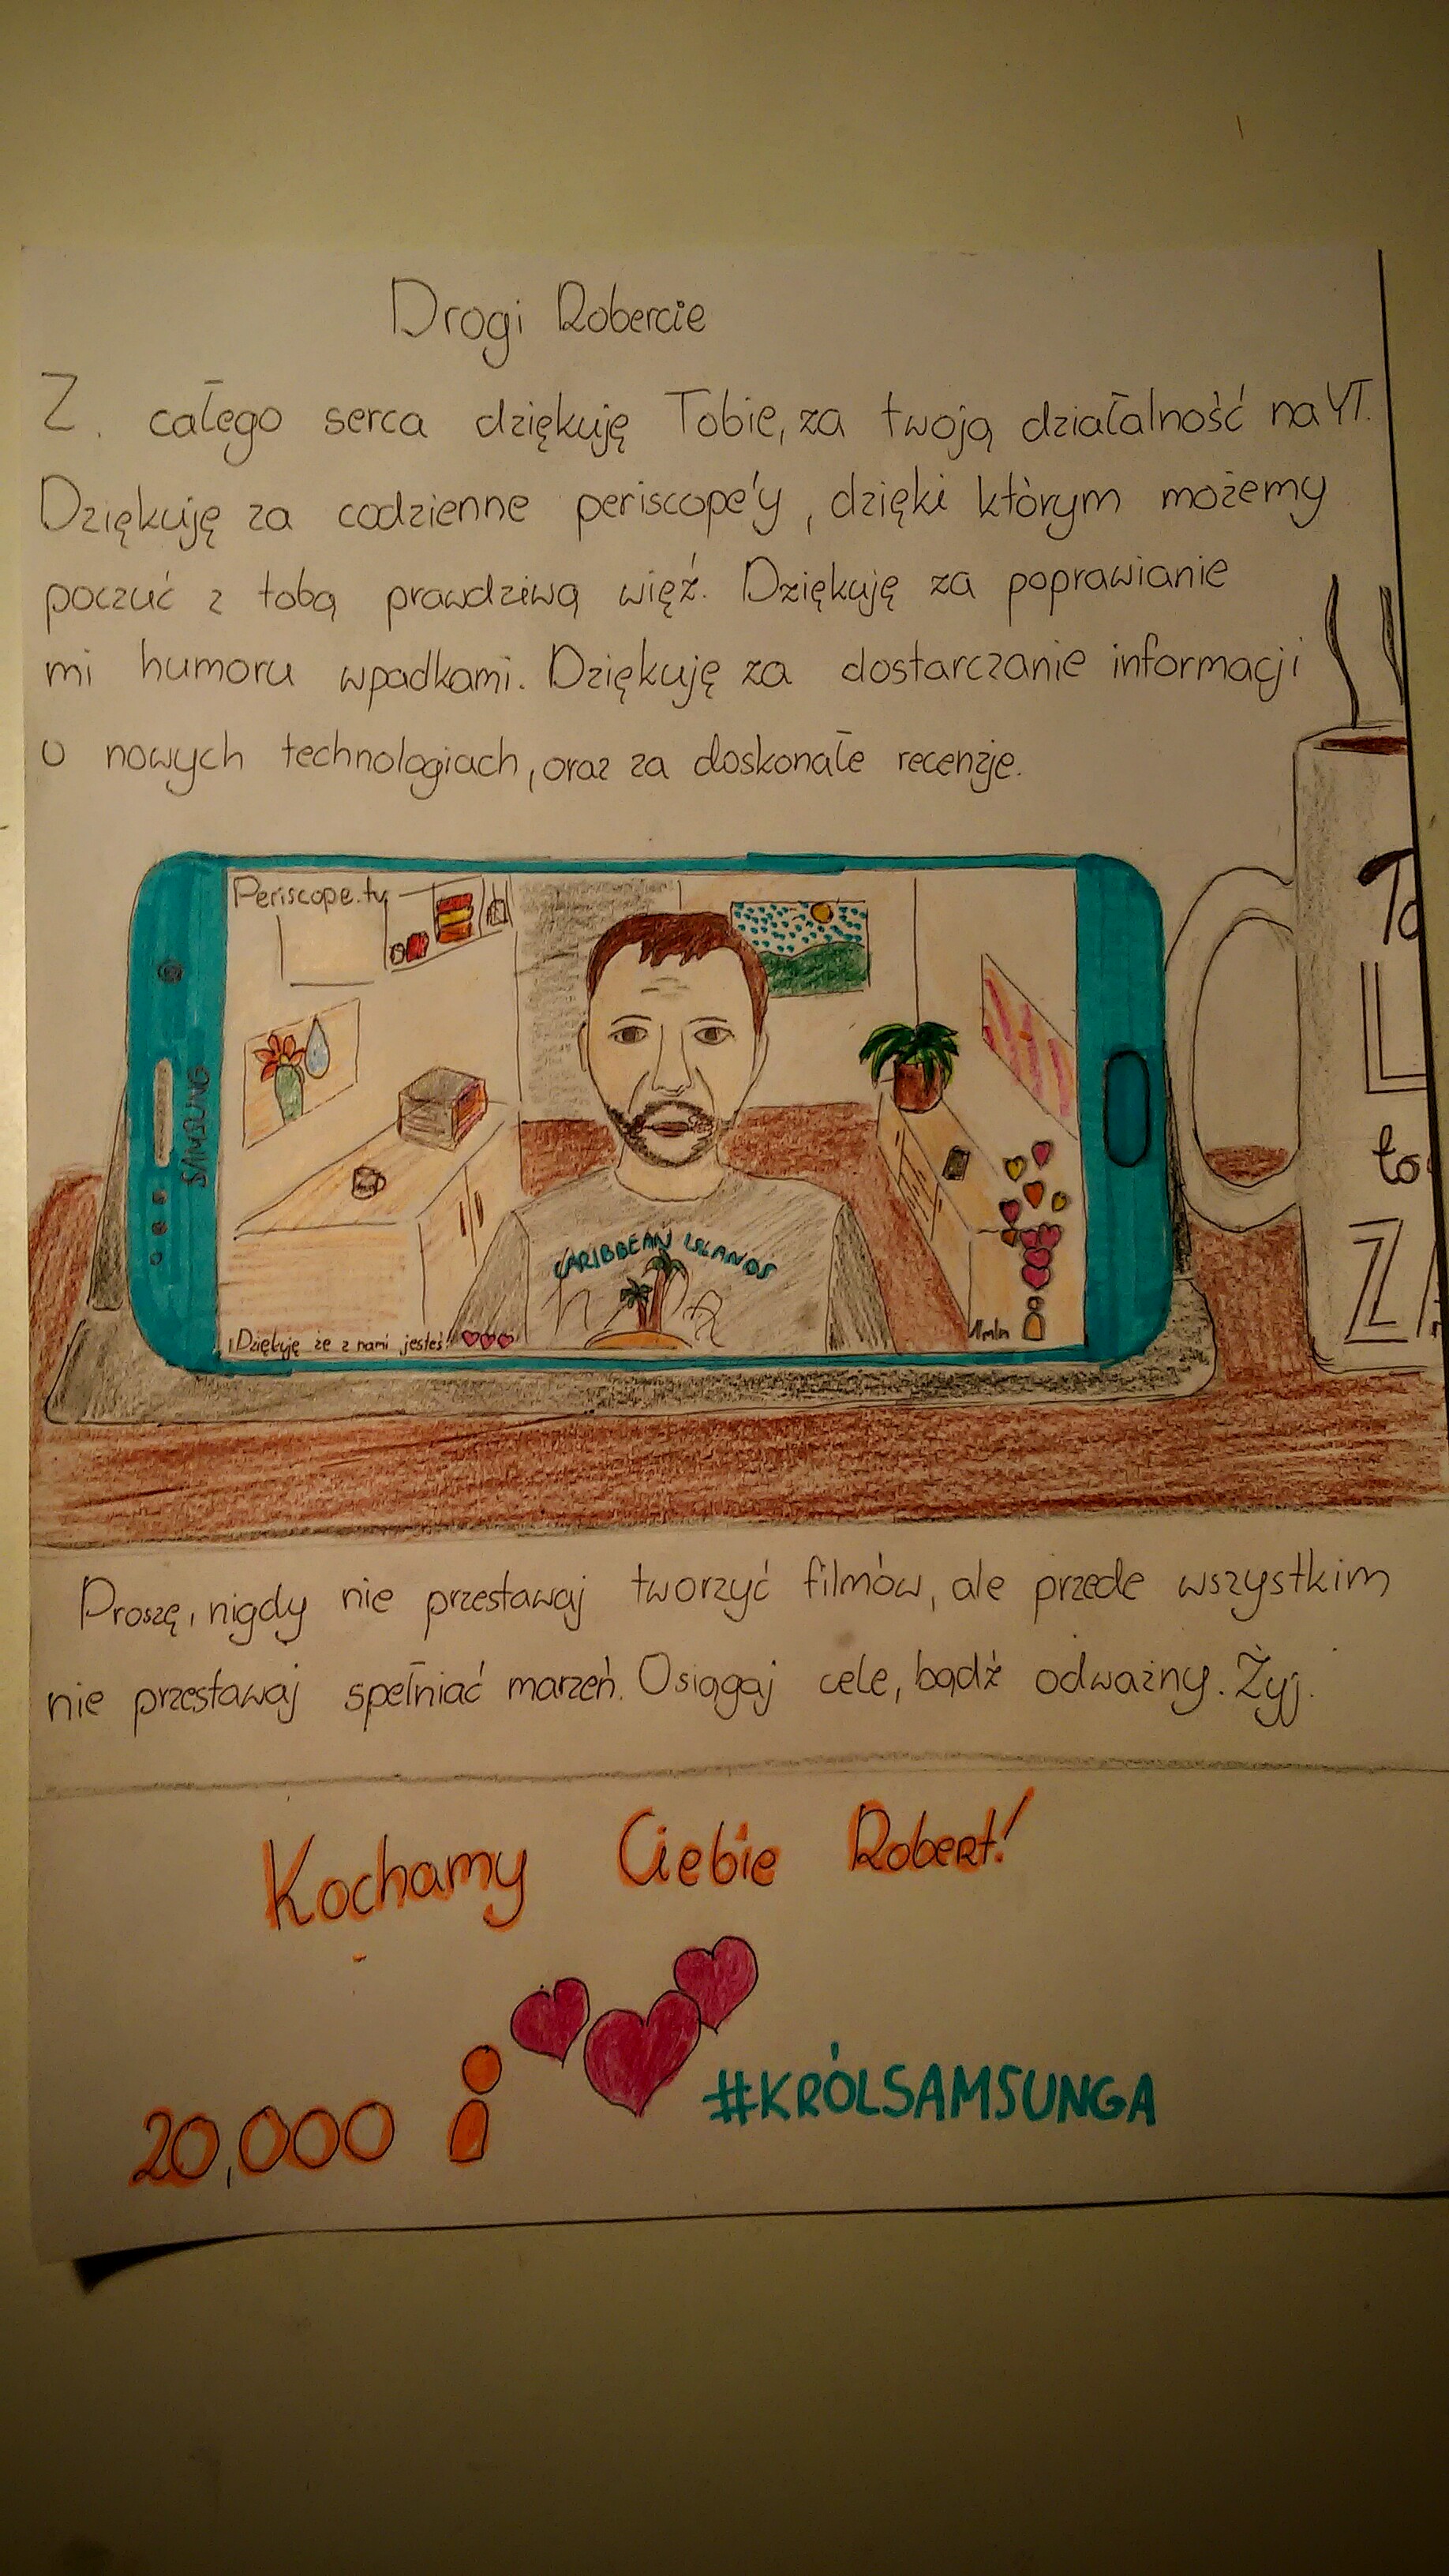 Drogi Robercie
Z całego serca dziękuję Tobie, za twoją działalność na YT.
Dziękuję za codzienne periscope'y, dzięki którym możemy
poczuć z tobą prawdziwą więź. Dziękuję za poprawianie
mi humoru wpadkami. Dziękuję za dostarczanie informacji
o nowych technologiach, oraz za doskonałe recenzje.
Periscope.tv
SAMSUNG
CARIBBEAN ISLANDS
Dziękuję że z nami jesteś!
1mln
To
L
to
Z
Proszę, nigdy nie przestawaj tworzyć filmów, ale przede wszystkim
nie przestawaj spełniać marzeń. Osiągaj cele, bądź odważny. Żyj.
Kochamy Ciebie Robert!
20,000
#KRÓLSAMSUNGA